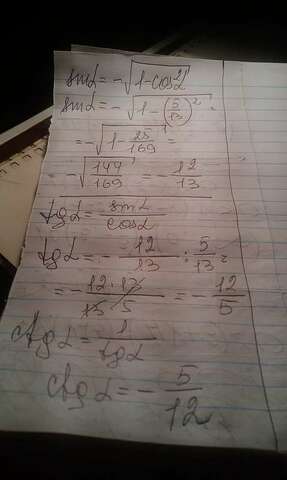 sinα = -√1-cos²α
sinα = -√1-(5/13)² =
= -√1-25/169 =
= -√144/169 = -12/13
tgα = sinα/cosα
tgα = -12/13 : 5/13 =
= -12·13/13·5 = -12/5
ctgα = 1/tgα
ctgα = -5/12